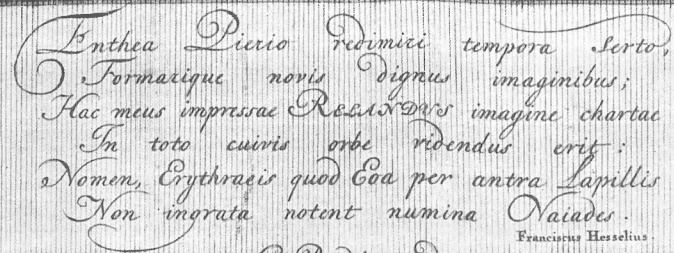 Enthea Pierio redimiri tempora serto,
Formarique novis dignus imaginibus;
Hac meus impressae RELANDVS imagine chartae
In toto cuivis orbe videndus erit:
Nomen, Erythraeis quod Eoa per antra Lapillis
Non ingrata notent numina Naiades.
Franciscus Hesselius.